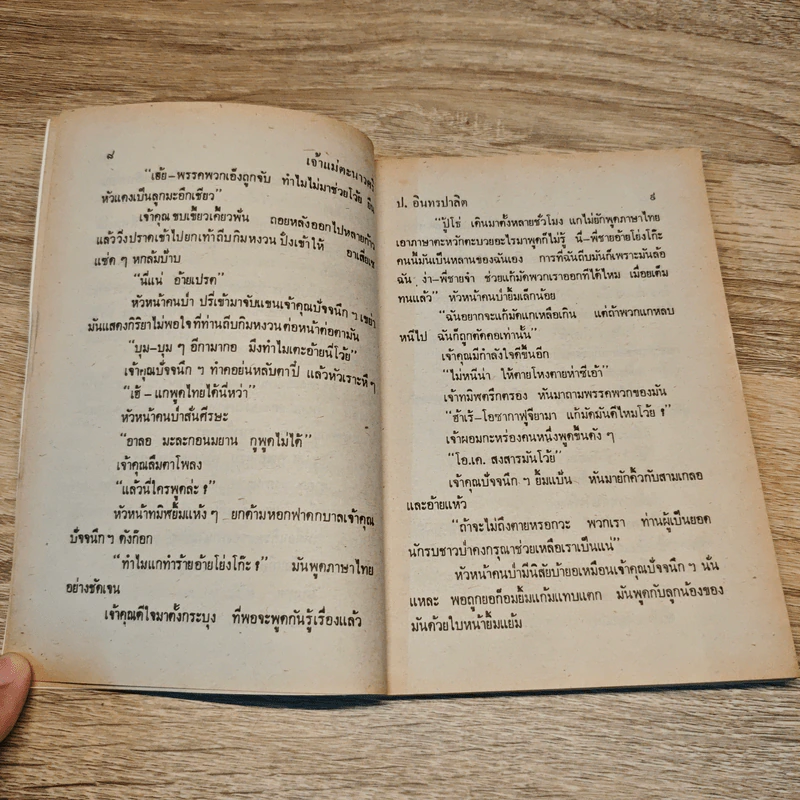 ๘
เจ้าแม่ตะนาวศรี
“เฮ้ย–พรรคพวกเอ็งถูกจับ ทำไมไม่มาช่วยโว้ย ยืน
หัวแดงเป็นลูกมะอึกเชียว”
เจ้าคุณขบเขี้ยวเคี้ยวฟัน ถอยหลังออกไปหลายก้าว
แล้ววิ่งปราดเข้าไปยกเท้าถีบกิมหงวน ปึงเข้าให้ อาเสี่ยเซ
แซ่ด ๆ หกล้มป้าบ
“นี่แน่ อ้ายเปรต”
หัวหน้าคนป่า ปรี่เข้ามาจับแขนเจ้าคุณปัจจนึก ฯ เขย่า
มันแสดงกิริยาไม่พอใจที่ท่านถีบกิมหงวนต่อหน้าต่อตามัน
“บุม–บุม ๆ อีกามากอ มึงทำไมเตะอ้ายนี่โว้ย”
เจ้าคุณปัจจนึก ฯ ทำคอย่นหลับตาปี๋ แล้วหัวเราะหึ ๆ
“เฮ้ – แกพูดไทยได้นี่หว่า”
หัวหน้าคนป่าสั่นศีรษะ
“อาลอ มะละกอนมยาน กูพูดไม่ได้”
เจ้าคุณลืมตาโพลง
“แล้วนี่ใครพูดล่ะ ?”
หัวหน้าทมิฬยิ้มแห้ง ๆ ยกด้ามหอกฟาดกบาลเจ้าคุณ
ปัจจนึก ฯ ดังก๊อก
“ทำไมแกทำร้ายอ้ายโย่งโก๊ะ ?” มันพูดภาษาไทย
อย่างชัดเจน
เจ้าคุณดีใจมาตั้งกระบุง ที่พอจะพูดกันรู้เรื่องแล้ว
ป. อินทรปาลิต
๙
“ปู้โธ่ เดินมาตั้งหลายชั่วโมง แกไม่ยักพูดภาษาไทย
เอาภาษาตะหวักตะบวยอะไรมาพูดก็ไม่รู้ นี่–พี่ชายอ้ายโย่งโก๊ะ
คนนี้มันเป็นหลานของฉันเอง การที่ฉันถีบมันก็เพราะมันล้อ
ฉัน ง่า–พี่ชายจ๋า ช่วยแก้มัดพวกเราออกทีได้ไหม เมื่อยเต็ม
ทนแล้ว” หัวหน้าคนป่ายิ้มเล็กน้อย
“ฉันอยากจะแก้มัดแกเหลือเกิน แต่ถ้าพวกแกหลบ
หนีไป ฉันก็ถูกตัดคอเท่านั้น”
เจ้าคุณมีกำลังใจดีขึ้นอีก
“ไม่หนีน่า ให้ตายโหงตายห่าซีเอ้า”
เจ้าทมิฬตรึกตรอง หันมาถามพรรคพวกของมัน
“ฮ้าเร้–โอซากาฟูจียามา แก้มัดมันดีไหมโว้ย ?”
เจ้าผอมกะหร่องคนหนึ่งพูดขึ้นดัง ๆ
“โอ.เค. สงสารมันโว้ย”
เจ้าคุณปัจจนึก ฯ ยิ้มแป้น หันมายักคิ้วกับสามเกลอ
และอ้ายแห้ว
“ถ้าจะไม่ถึงตายหรอกวะ พวกเรา ท่านผู้เป็นยอด
นักรบชาวป่าคงกรุณาช่วยเหลือเราเป็นแน่”
หัวหน้าคนป่ามีนิสัยบ้ายอเหมือนเจ้าคุณปัจจนึก ฯ นั่น
แหละ พอถูกยอก็อมยิ้มแก้มแทบแตก มันพูดกับลูกน้องของ
มันด้วยใบหน้ายิ้มแย้ม